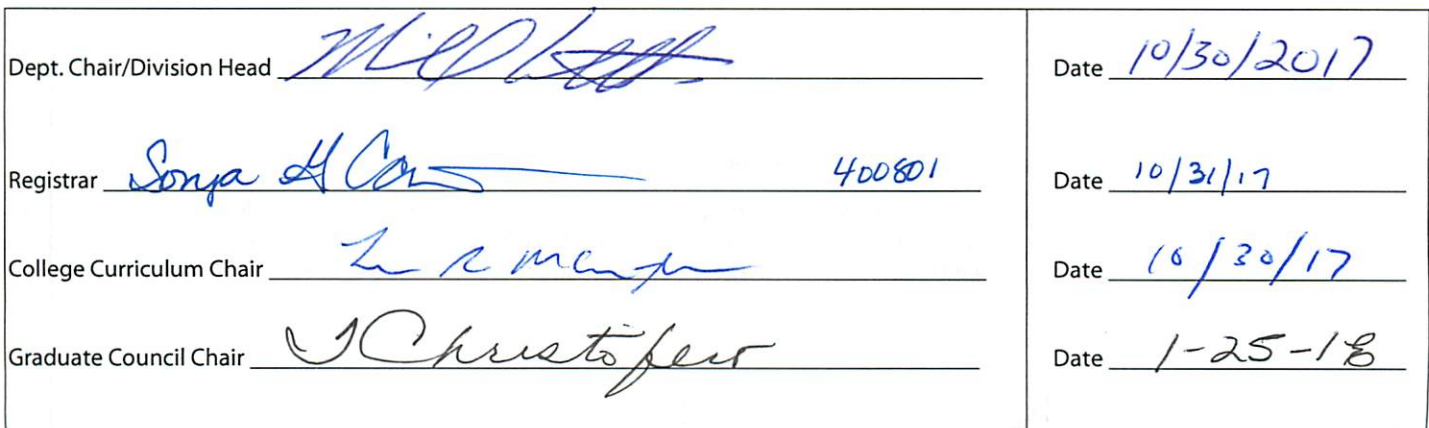 Dept. Chair/Division Head Date 10/30/2017
Registrar Sonja 400801 Date 10/31/17
College Curriculum Chair Date 10/30/17
Graduate Council Chair Date 1-25-18